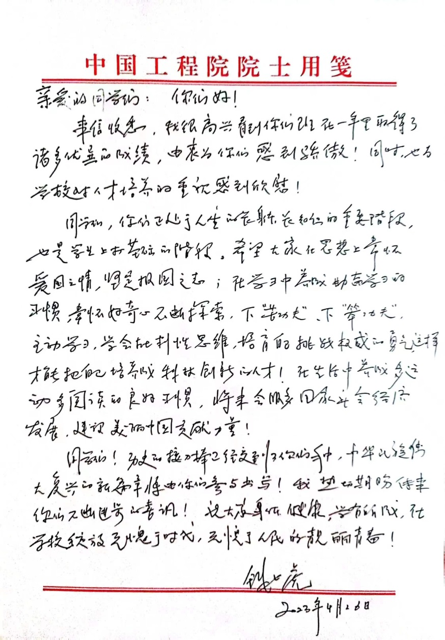 中国工程院院士用笺
亲爱的同学们：你们好！
来信收悉，我很高兴看到你们班在一年里取得了
诸多优异的成绩，由衷为你们感到骄傲！同时，也为
学校对人才培养的重视感到欣慰！
同学们，你们正处于人生的成长的重要阶段，
也是学生上打基础的阶段。希望大家在思想上常怀
爱国之情，坚定报国之志；在学习中养成勤奋学习的
习惯，常怀好奇心不断探索，下“苦功夫”、下“笨功夫”，
主动学习，学会批判性思维，培育敢于挑战权威的勇气，这样
才能把自己培养成科技创新的人才！在生活中养成多运
动多阅读的良好习惯，将来会服务国家社会经济
发展、建设美丽中国贡献力量！
同学们！历史的接力棒已经交到了你们手中，中华民族伟
大复兴的新篇章将由你们参与书写！我热切期盼传来
你们不断进步的喜讯！祝大家身体健康，学有所成，在
学校绽放无愧于时代，无愧于人民的靓丽青春！
钱七虎
2023年4月26日